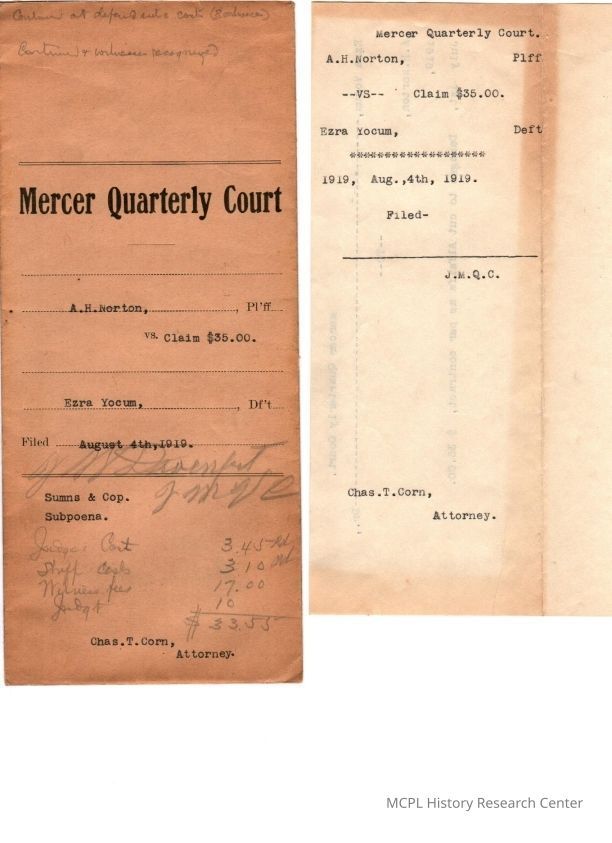 Continued at defendants costs
Continued & witnesses recognized
Mercer Quarterly Court
A.H.Norton, Pl'ff
vs. Claim $35.00.
Ezra Yocum, Df't
Filed August 4th,1919.
J M Q C
Sumns & Cop.
Subpoena.
Judges Cost 3.45 Pd
Shff Costs 3.10 Pd
Witness fees 17.00
Judgt 10
$33.55
Chas.T.Corn,
Attorney.
Mercer Quarterly Court.
A.H.Norton, Plff
--VS-- Claim $35.00.
Ezra Yocum, Deft
*****************
1919, Aug.,4th, 1919.
Filed-
J.M.Q.C.
Chas.T.Corn,
Attorney.
MCPL History Research Center